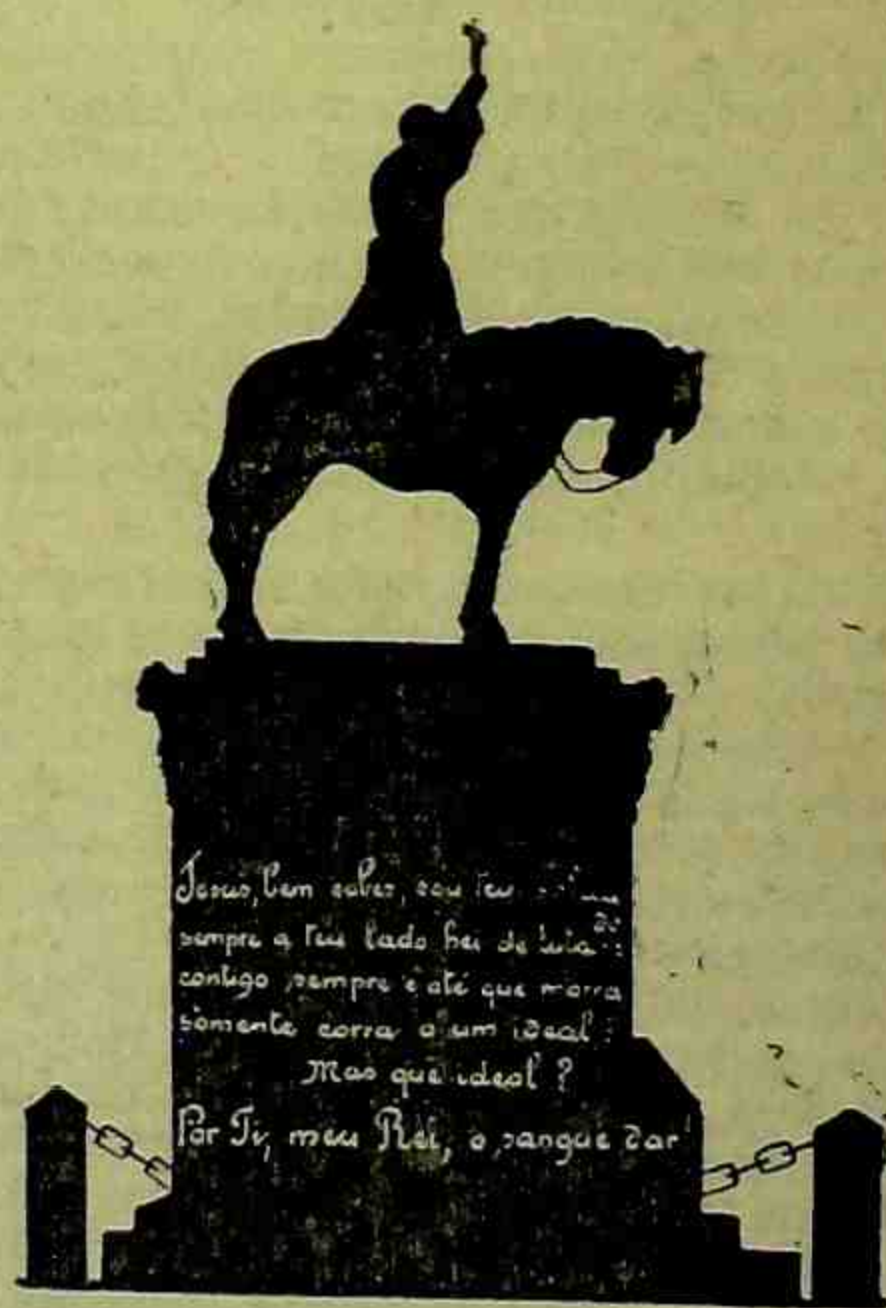 Jesus, bem sabes, sou teu
sempre a teu lado hei de
contigo sempre e até que morra
sómente corra a um ideal :
Mas que ideal ?
Por Ti, meu Rei, o sangue dar